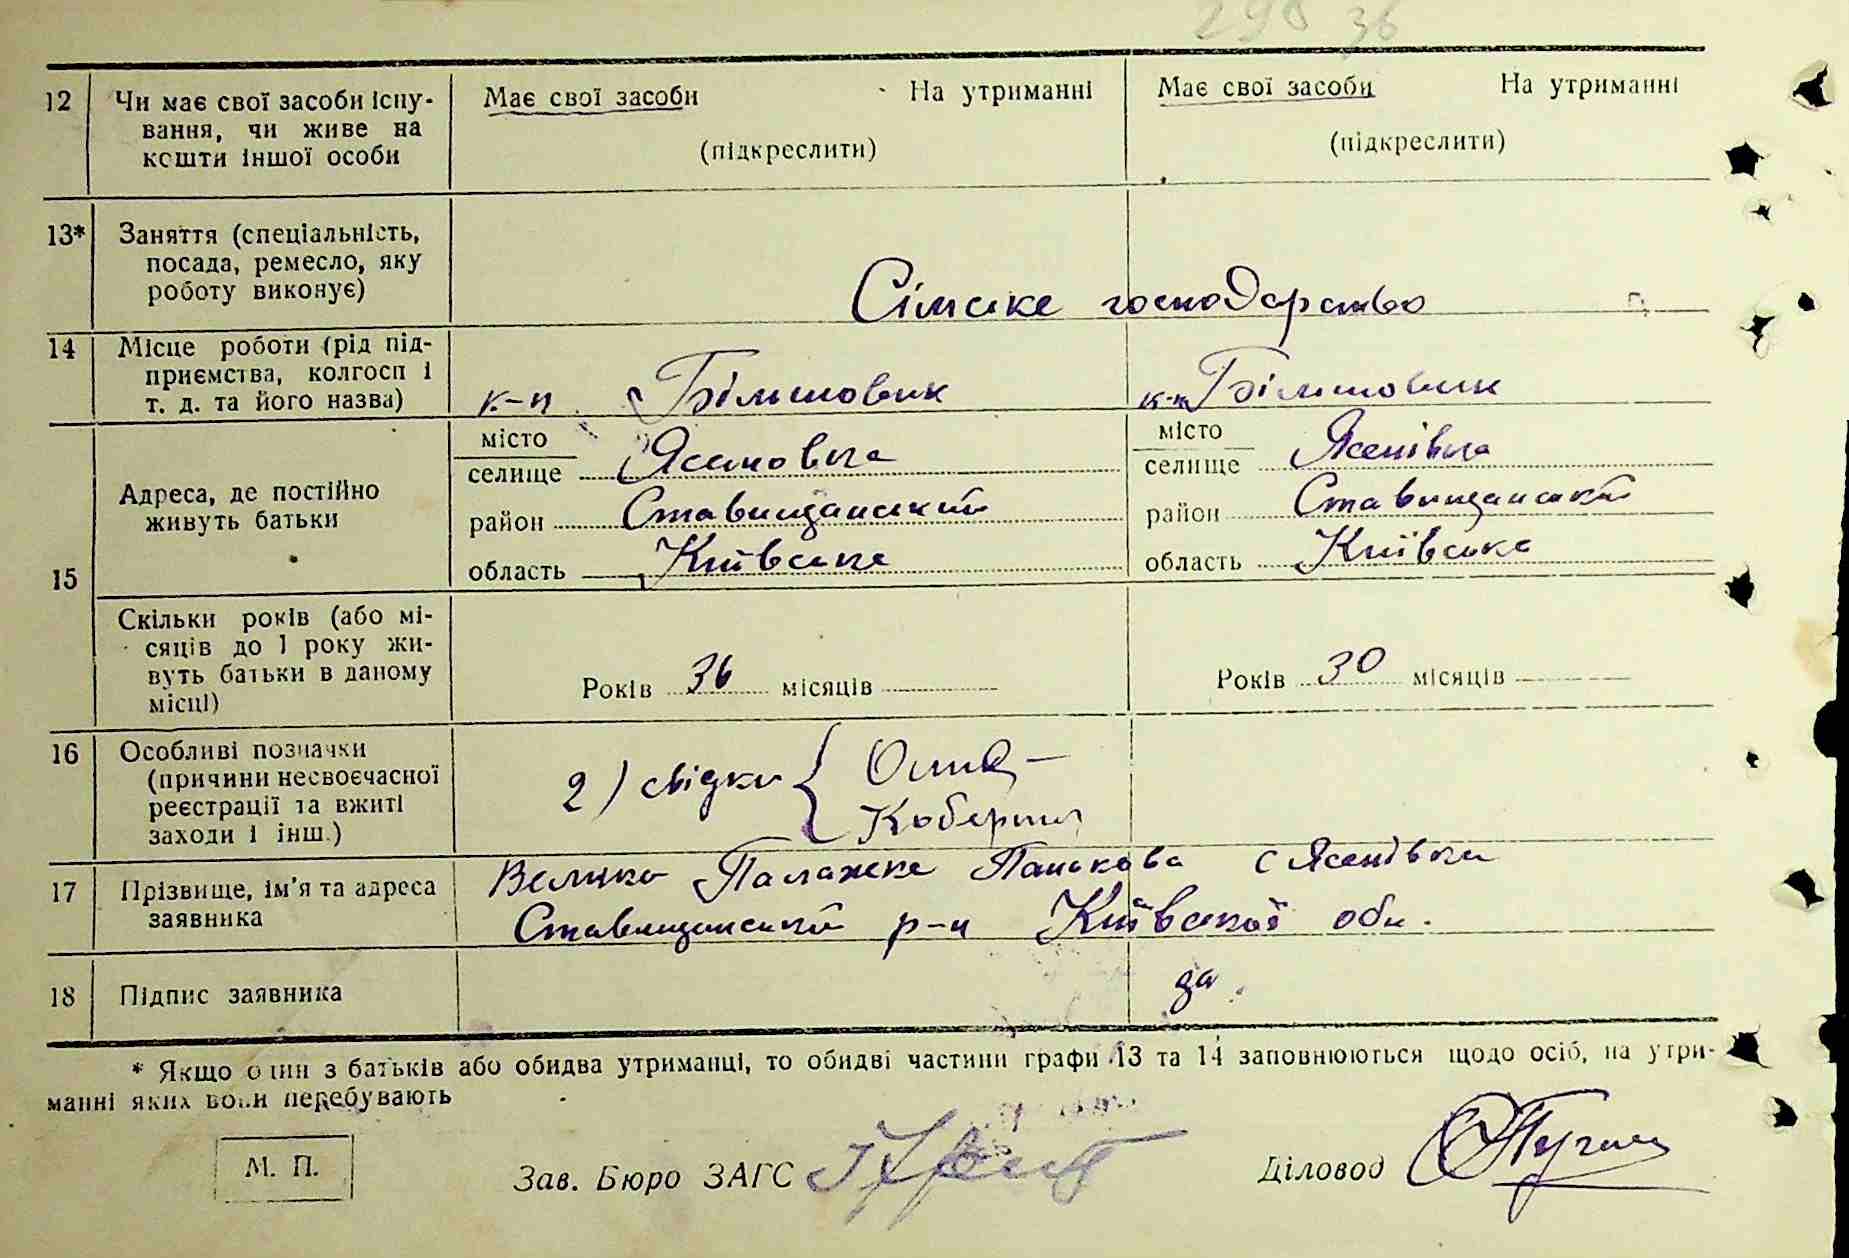 298 36
12 Чи має свої засоби існу-
вання, чи живе на
кошти іншої особи
Має свої засоби На утриманні
(підкреслити)
Має свої засоби На утриманні
(підкреслити)
13* Заняття (спеціальність,
посада, ремесло, яку
роботу виконує)
Сільське господарство
14 Місце роботи (рід під-
приємства, колгосп і
т. д. та його назва)
к-п Більшовик
к-п Більшовик
15 Адреса, де постійно
живуть батьки
місто
селище Ясеновка
район Ставищанський
область Київська
місто
селище Ясенівка
район Ставищанський
область Київська
Скільки років (або мі-
сяців до 1 року жи-
вуть батьки в даному
місці)
Років 36 місяців
Років 30 місяців
16 Особливі позначки
(причини несвоєчасної
реєстрації та вжиті
заходи і інш.)
2) свідки
17 Прізвище, ім'я та адреса
заявника
Палажка Панькова с Ясенівка
Ставищанський р-н Київської обл.
18 Підпис заявника
да.
* Якщо один з батьків або обидва утриманці, то обидві частини графи 13 та 14 заповнюються щодо осіб, на утри-
манні яких вони перебувають
М. П.
Зав. Бюро ЗАГС
Діловод